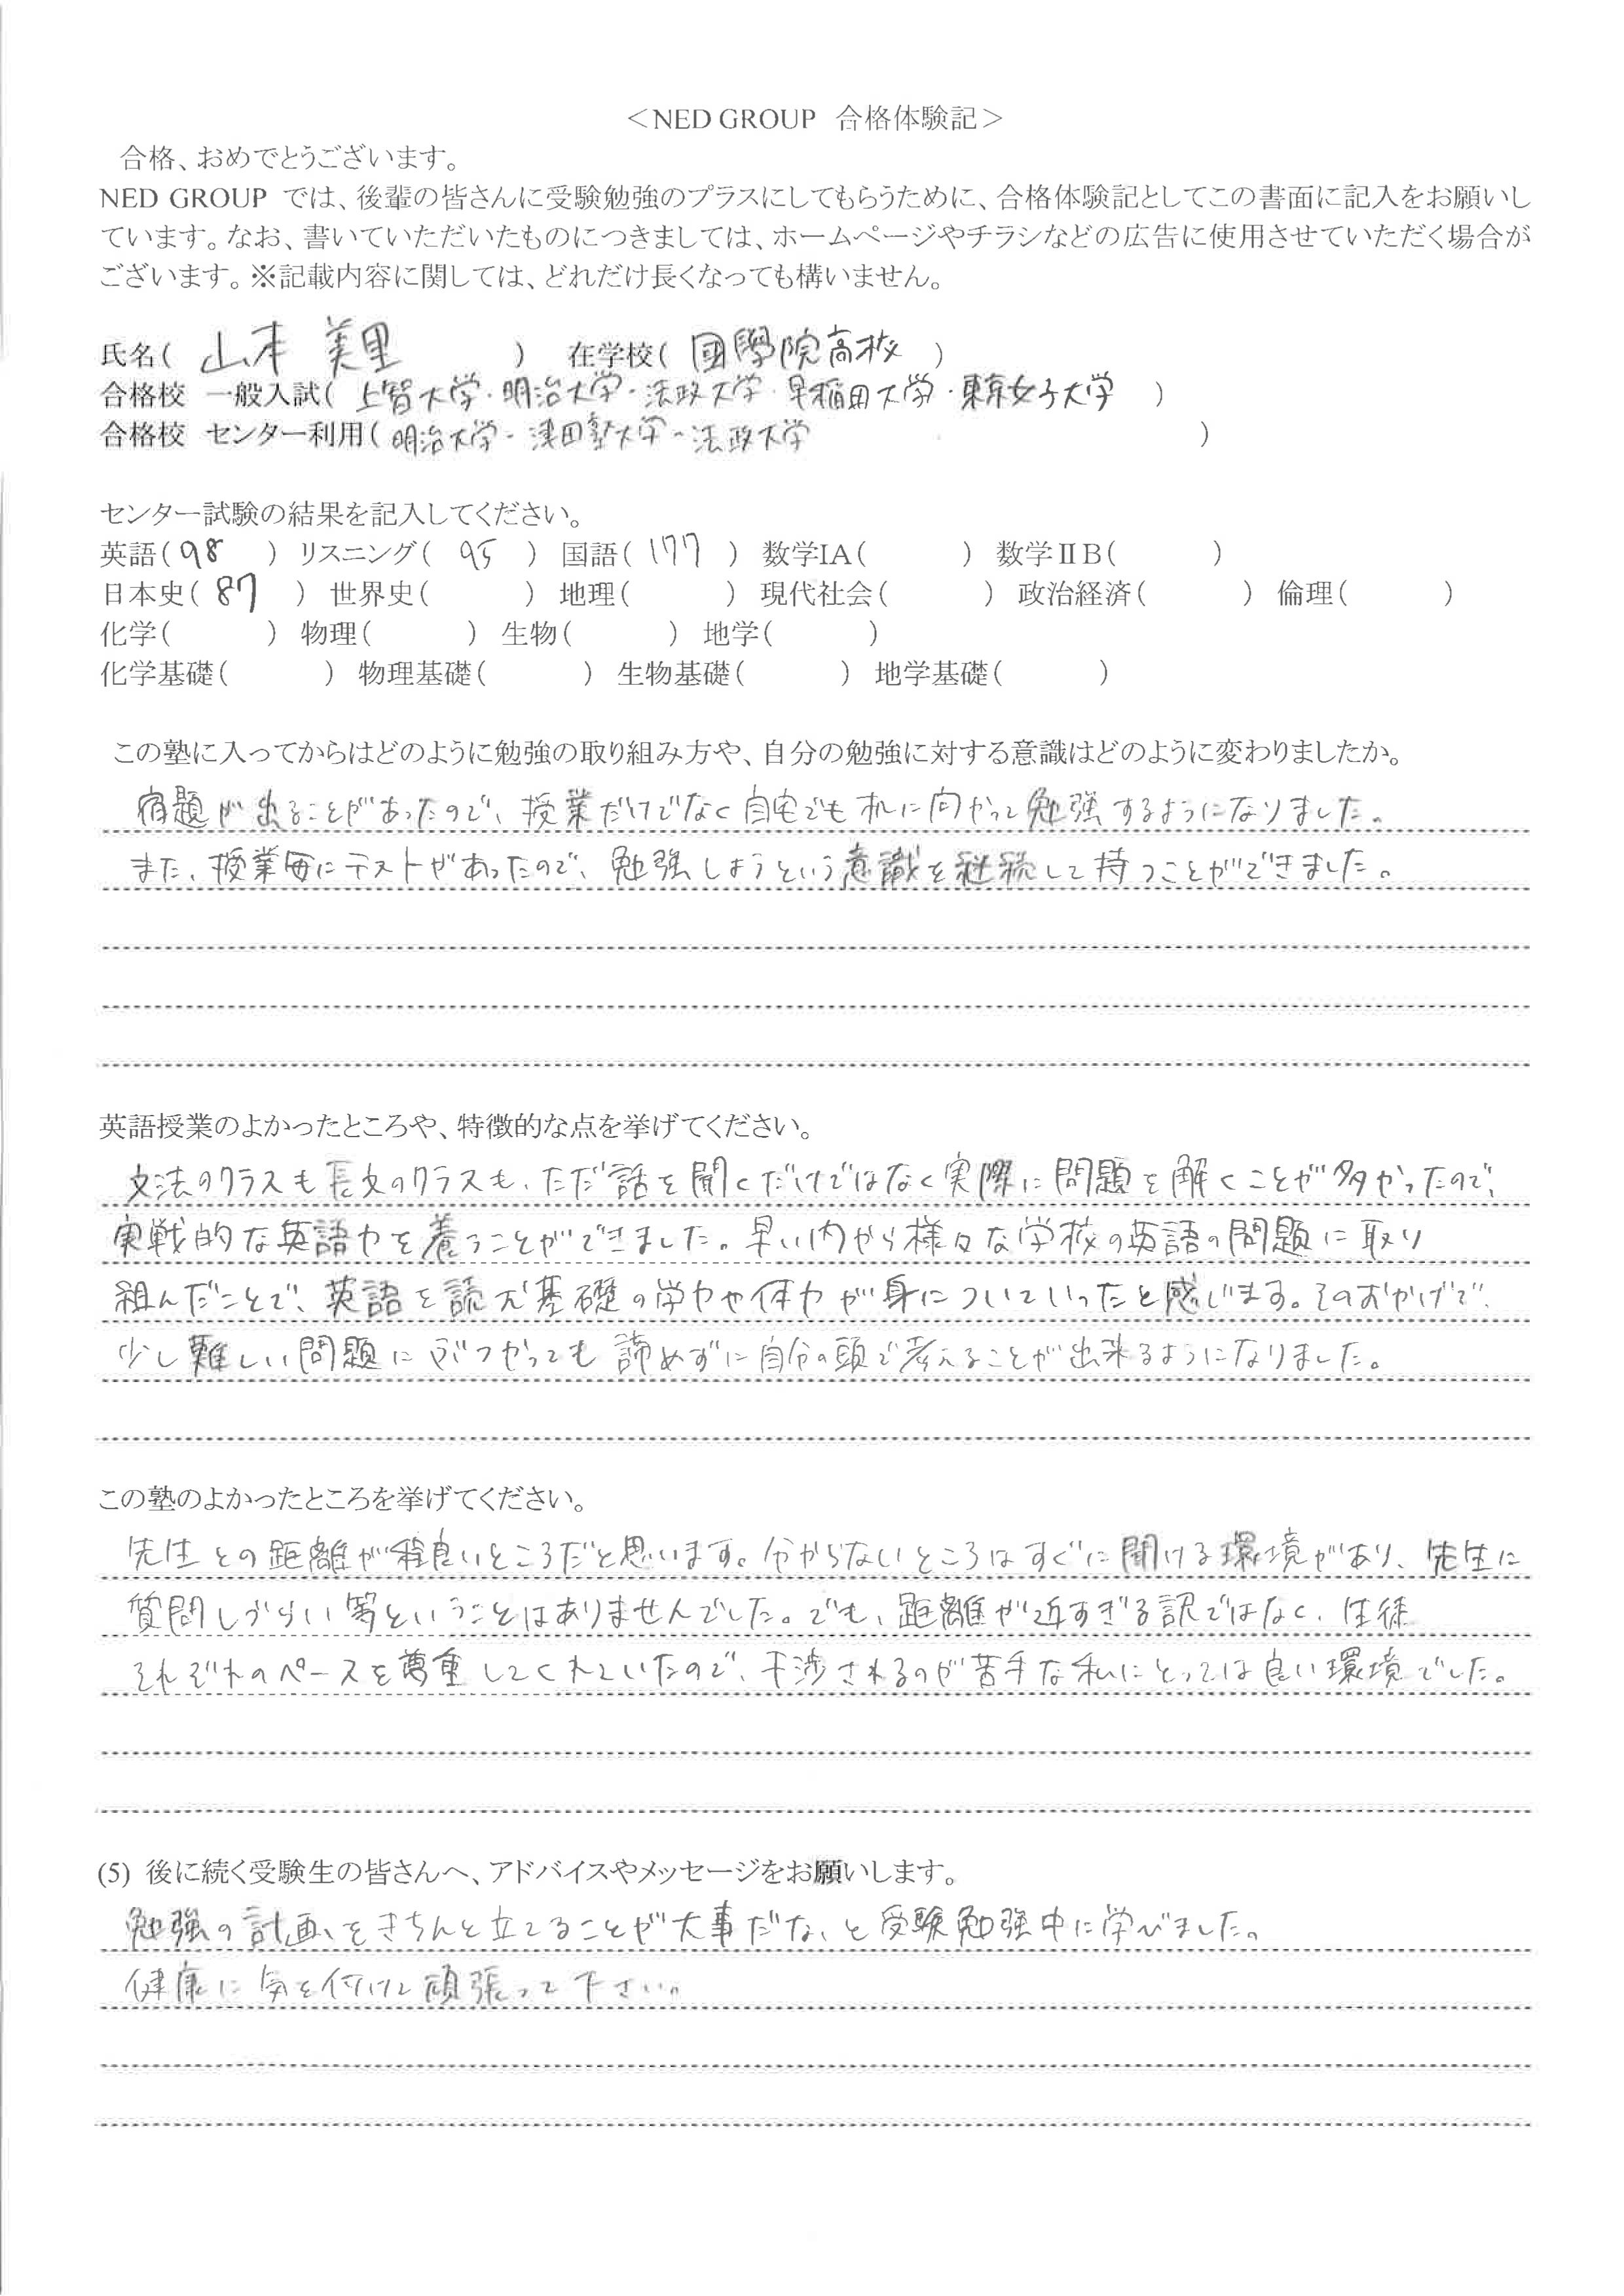 ＜NED GROUP 合格体験記＞
合格、おめでとうございます。
NED GROUP では、後輩の皆さんに受験勉強のプラスにしてもらうために、合格体験記としてこの書面に記入をお願いし
ています。なお、書いていただいたものにつきましては、ホームページやチラシなどの広告に使用させていただく場合が
ございます。※記載内容に関しては、どれだけ長くなっても構いません。
氏名( 山本 美里 ) 在学校( 國學院高校 )
合格校 一般入試( 上智大学・明治大学・法政大学・早稲田大学・東京女子大学 )
合格校 センター利用( 明治大学・津田塾大学・法政大学 )
センター試験の結果を記入してください。
英語( 98 ) リスニング( 95 ) 国語( 177 ) 数学IA( ) 数学ⅡB( )
日本史( 87 ) 世界史( ) 地理( ) 現代社会( ) 政治経済( ) 倫理( )
化学( ) 物理( ) 生物( ) 地学( )
化学基礎( ) 物理基礎( ) 生物基礎( ) 地学基礎( )
この塾に入ってからはどのように勉強の取り組み方や、自分の勉強に対する意識はどのように変わりましたか。
宿題が出ることがあったので、授業だけでなく自宅でも机に向かって勉強するようになりました。
また、授業毎にテストがあったので、勉強しようという意識を継続して持つことができました。
英語授業のよかったところや、特徴的な点を挙げてください。
文法のクラスも長文のクラスも、ただ話を聞くだけではなく実際に問題を解くことが多かったので、
実戦的な英語力を養うことができました。早い内から様々な学校の英語の問題に取り
組んだことで、英語を読む基礎の学力や体力が身についていったと感じます。そのおかげで、
少し難しい問題にぶつかっても諦めずに自分の頭で考えることが出来るようになりました。
この塾のよかったところを挙げてください。
先生との距離が程良いところだと思います。分からないところはすぐに聞ける環境があり、先生に
質問しづらい等ということはありませんでした。でも、距離が近すぎる訳ではなく、生徒
それぞれのペースを尊重してくれていたので、干渉されるのが苦手な私にとっては良い環境でした。
(5) 後に続く受験生の皆さんへ、アドバイスやメッセージをお願いします。
勉強の計画をきちんと立てることが大事だな、と受験勉強中に学びました。
健康に気を付けて頑張って下さい。